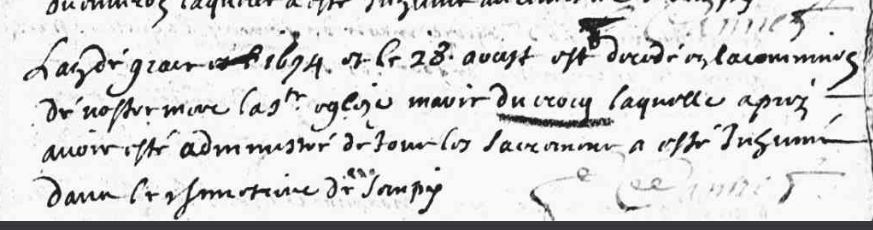 Lan de grace 1694 et le 28 aoust est decedé en la communion
de nostre mere la ste eglize marie du crocq laquelle apres
avoir esté administré de tous les sacremens a esté Inhumé
dans le cymetiere de Sempy